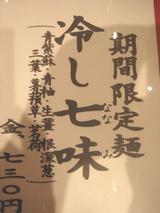 期間限定麺
冷し七味
なな み
青紫蘇・青柚・生薑・根深葱
三葉・蓼積草・茗荷
金、七三〇円